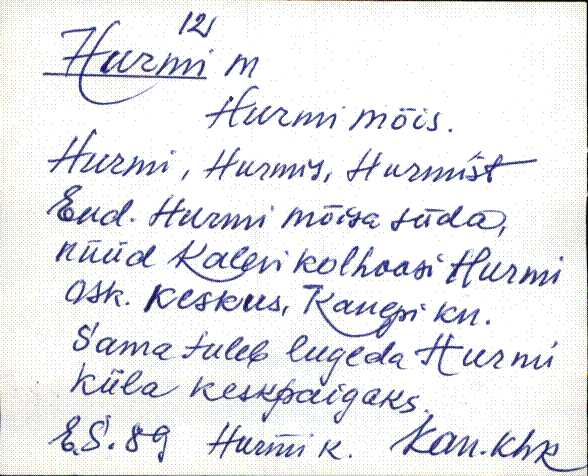 121
Hurmi m
Hurmi mõis.
Hurmi, Hurmis, Hurmist
End. Hurmi mõisa süda,
nüüd Kalevi kolhoosi Hurmi
osk. keskus, Kanepi kn.
Sama tuleb lugeda Hurmi
küla keskpaigaks.
E.S. 89 Hurmi k. Kan. khk